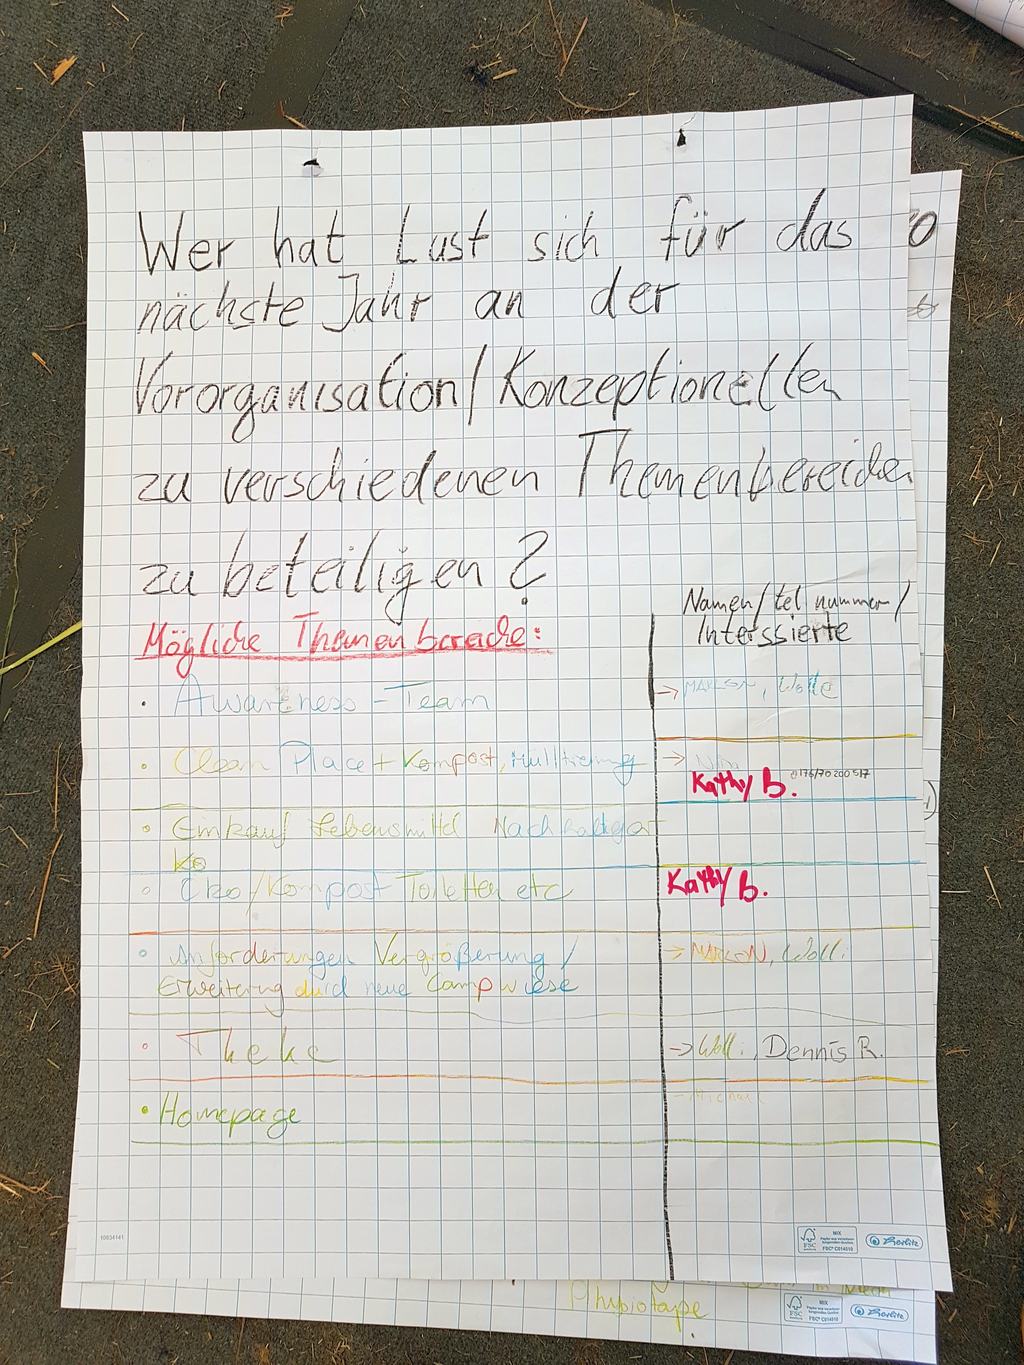 Wer hat Lust sich für das
nächste Jahr an der
Vororganisation/Konzeptionellen
zu verschiedenen Themenbereichen
zu beteiligen?
Namen/tel nummer/
Interssierte
Mögliche Themenbereiche:
• Awareness-Team
→ MARLON, Wolle
• Clean Place + Kompost, Mülltrennung
→ Nina
Kathy B. 0176/70200517
• Einkauf Lebensmittel
Ko
• Öko/Kompost Toiletten etc
Kathy B.
• Anforderungen Vergrößerung/
Erweiterung durch neue Campwiese
→ MARLON, Wolli
• Theke
→ Wolli, Dennis R.
• Homepage
- Michael
10834141
FSC
MIX
FSC® C014510
herlitz
Physiotape
FSC
MIX
FSC® C014510
herlitz